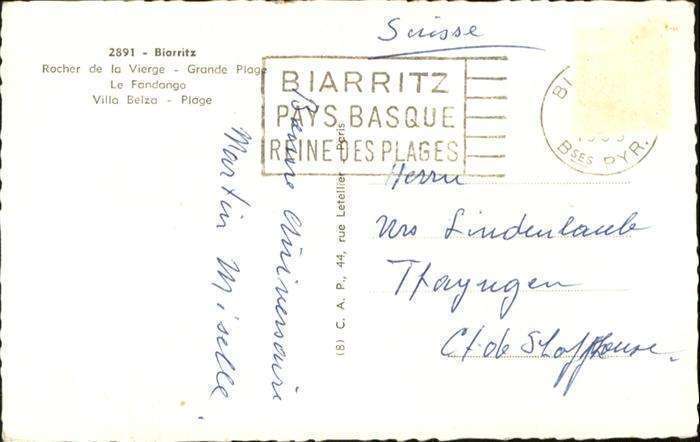 Suisse
2891 - Biarritz
Rocher de la Vierge - Grande Plage
Le Fandango
Villa Belza - Plage
BIARRITZ
PAYS BASQUE
REINE DES PLAGES
BI
BSES PYR.
Bonne Anniversaire
Martin Miselle.
(8) C. A. P., 44, rue Letellier - Paris
Herrn
Urs Lindenlaub
Thayngen
Ct. de